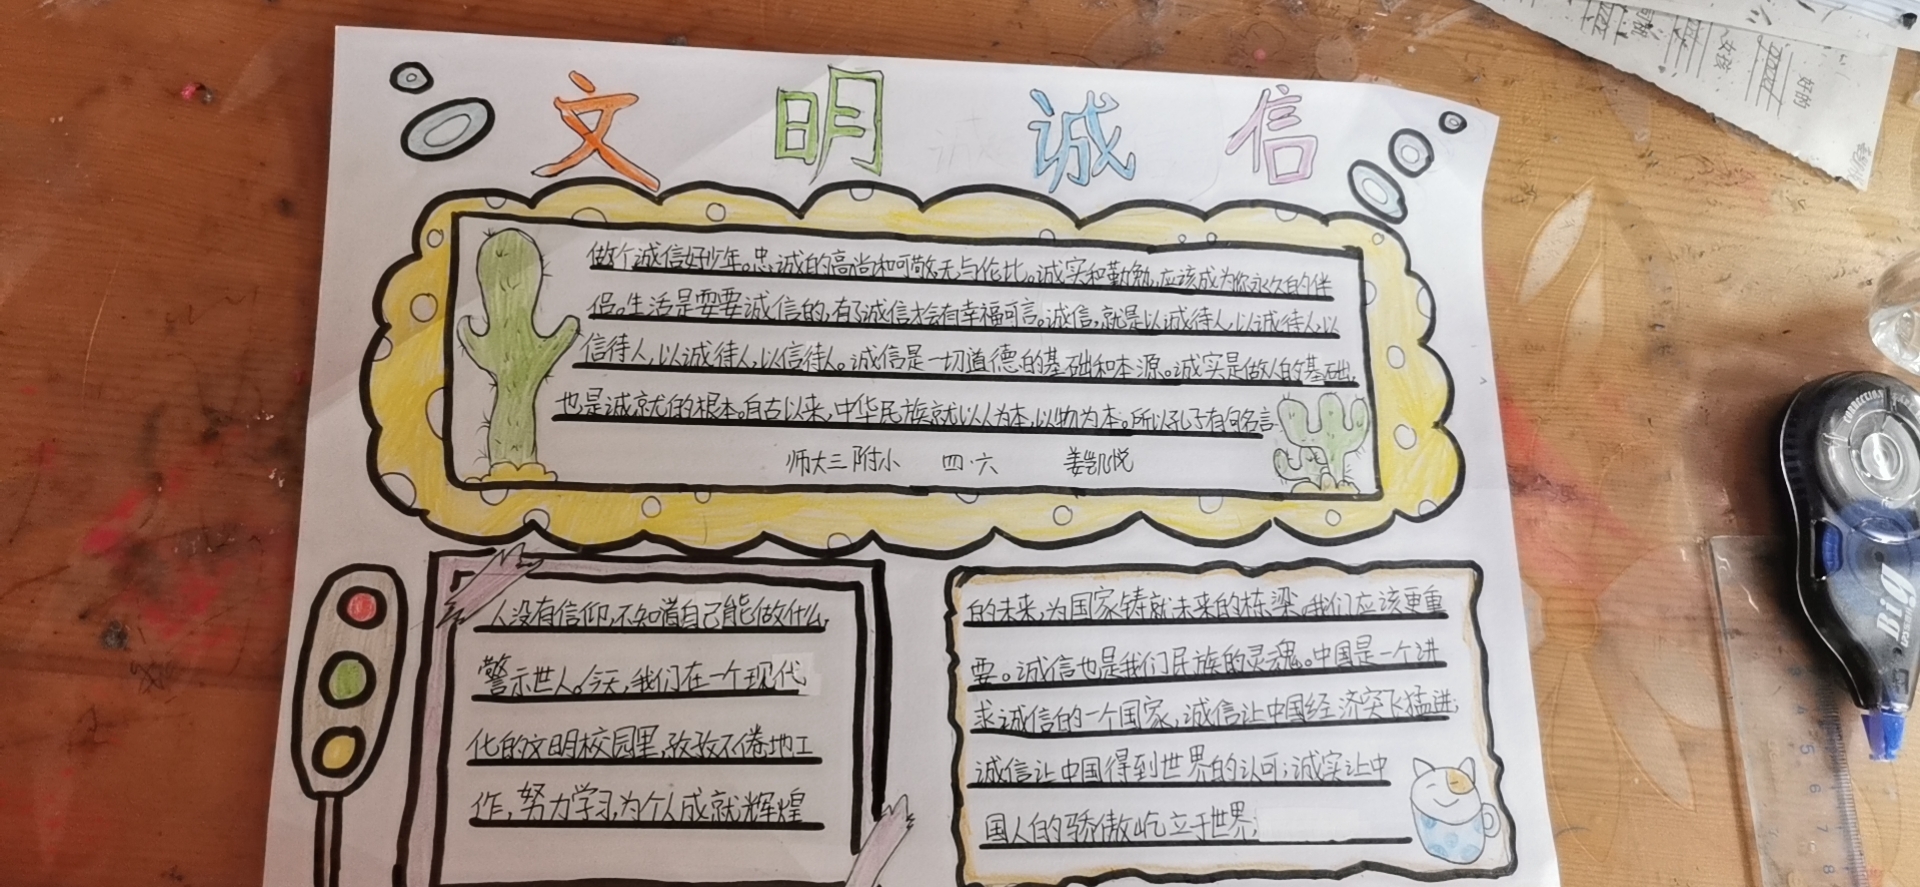 文明诚信
做个诚信好少年。忠诚的高尚和可敬无与伦比。诚实和勤勉,应该成为你永久的伴
侣。生活是需要诚信的,有了诚信才会有幸福可言。诚信,就是以诚待人,以诚待人,以
信待人,以诚待人,以信待人。诚信是一切道德的基础和本源。诚实是做人的基础,
也是诚就的根本。自古以来,中华民族就以人为本,以物为本。所以孔子有句名言
师大三附小 四·六 姜凯悦
人没有信仰,不知道自己能做什么,
警示世人。今天,我们在一个现代
化的文明校园里,孜孜不倦地工
作,努力学习,为个人成就辉煌
的未来,为国家铸就未来的栋梁。我们应该更重
要。诚信也是我们民族的灵魂。中国是一个讲
求诚信的一个国家,诚信让中国经济突飞猛进;
诚信让中国得到世界的认可;诚实让中
国人的骄傲屹立于世界;
CORRECTION
Big
5
6
7
8
好的
女孩